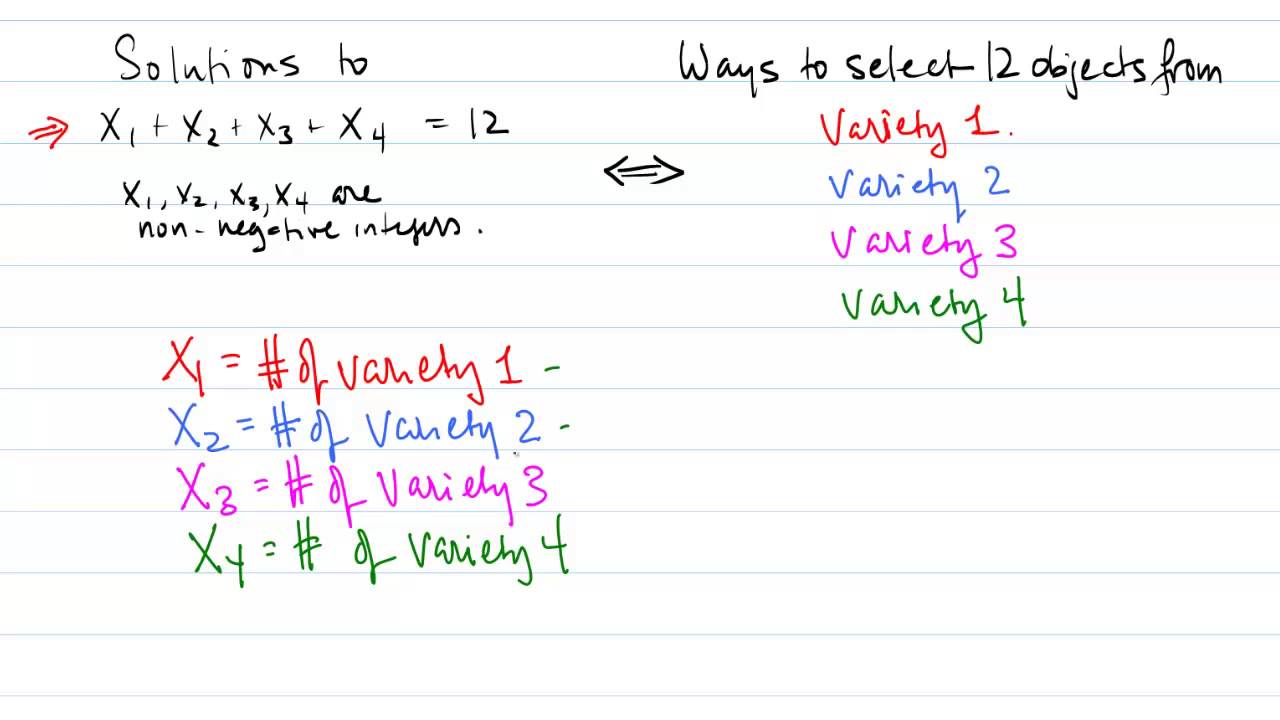 Solutions to
⇒ X₁ + X₂ + X₃ + X₄ = 12
X₁, X₂, X₃, X₄ are
non-negative integers.
⟺
Ways to select 12 objects from
Variety 1.
Variety 2
Variety 3
Variety 4
X₁ = # of variety 1 -
X₂ = # of variety 2 -
X₃ = # of variety 3
X₄ = # of variety 4